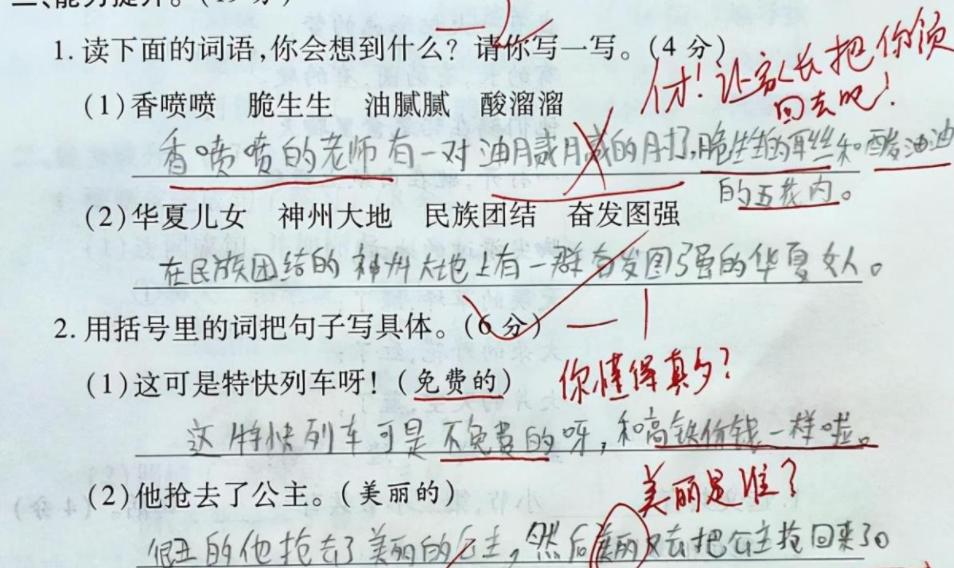 二、能力提升。(19分)
1. 读下面的词语,你会想到什么?请你写一写。(4分)
(1)香喷喷 脆生生 油腻腻 酸溜溜
仆! 让家长把你领回去吧!
香喷喷的老师有一对油腻腻的肘子,脆生生的耳丝和酸油油
的五花肉。
(2)华夏儿女 神州大地 民族团结 奋发图强
在民族团结的神州大地上有一群奋发图强的华夏女人。
2. 用括号里的词把句子写具体。(6分) —1
(1)这可是特快列车呀!(免费的) 你懂得真多?
这特快列车可是不免费的呀,和高铁价钱一样啦。
(2)他抢去了公主。(美丽的) 美丽是谁?
很丑的他抢去了美丽的公主,然后美丽又去把公主抢回来了。